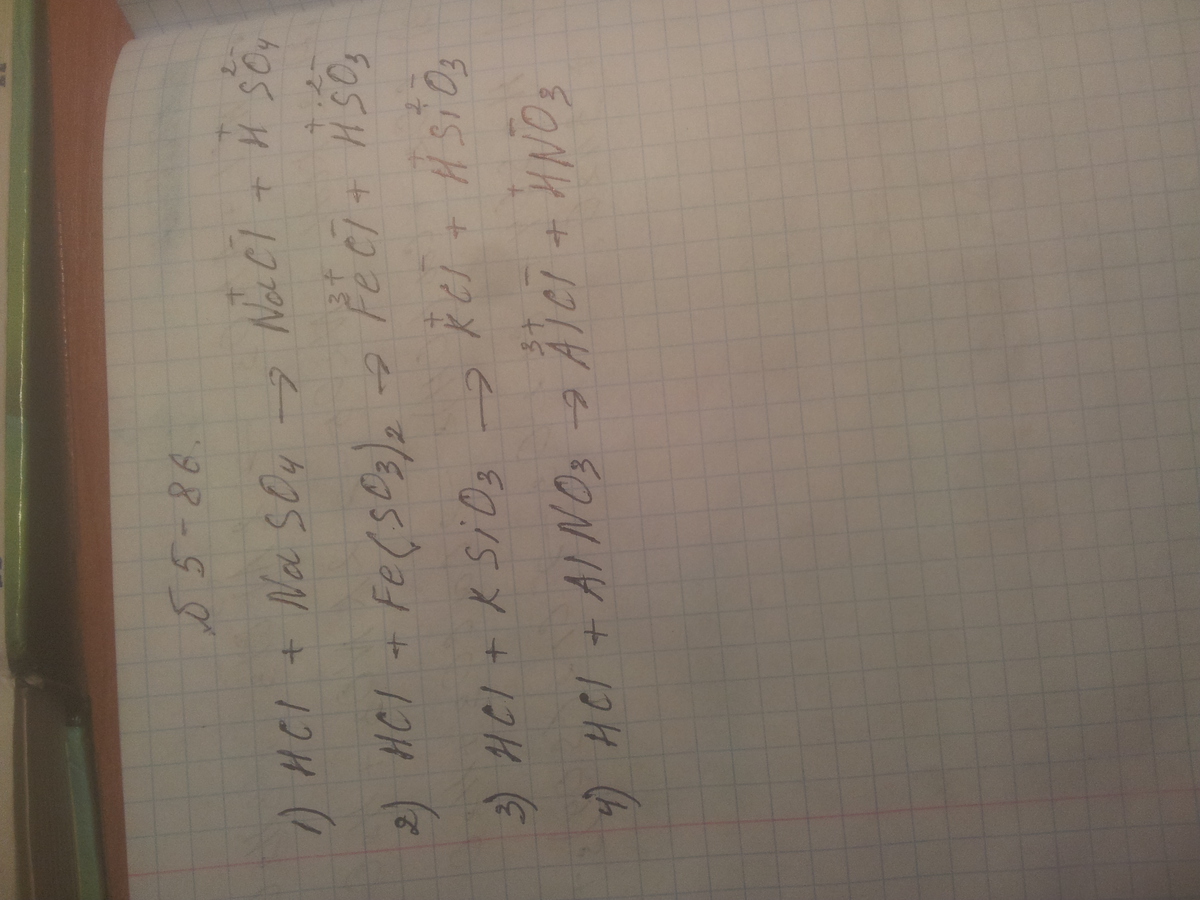 б 5 - 8 в.
1) HCl + Na SO₄ → Na⁺Cl⁻ + H⁺ SO₄²⁻
2) HCl + Fe(SO₃)₂ → Fe³⁺Cl⁻ + H⁺SO₃²⁻
3) HCl + K SiO₃ → K⁺Cl⁻ + H⁺SiO₃²⁻
4) HCl + AlNO₃ → Al³⁺Cl⁻ + H⁺NO₃⁻